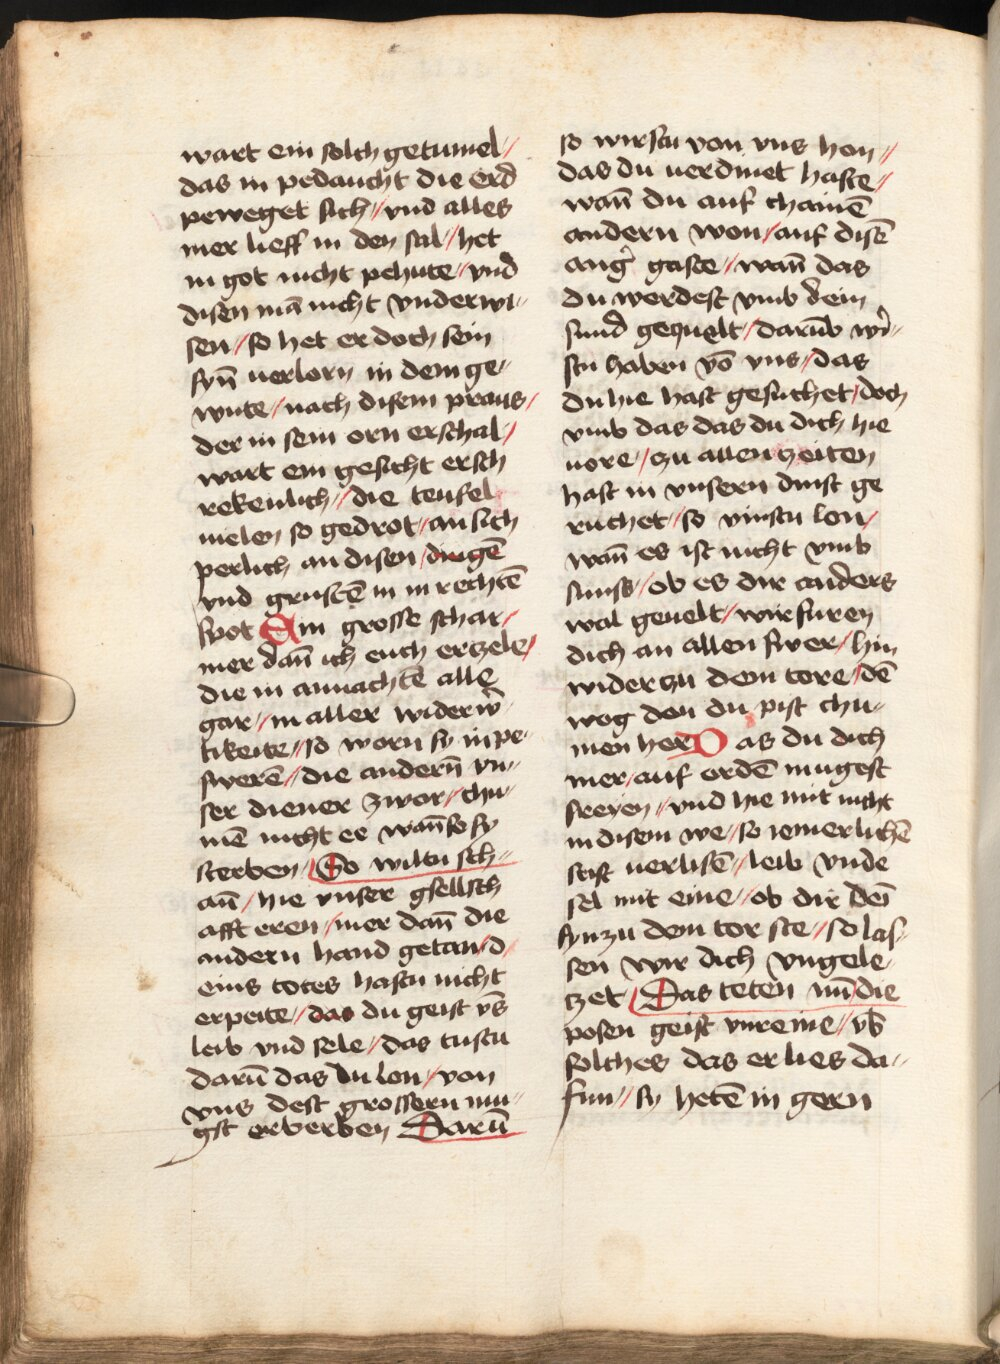 wart ein solch getumel //
das in pedaucht die erd
peweget sich // vnd alles
mer lieff in den sal / het
in got nicht pehute // vnd
disen mā nicht vnderwi-
sen // so het er doch sein
synn̄ uerlorn in dem ge-
wute // nach disem praus /
der in sein orn erschal /
wart ein gesicht ersch
rekenlich // die teufel
uielen so gedrot / an sich
perlich an disen / dingē
vnd grustē in in rechtē
spot Ein grosse schar /
mer dañ ich euch erzele /
die in annachtē alle
gar / in aller widerw̄
tikeite // so worn sy in pe-
swerē // die andern̄ vn-
ser diener zwor / chu-
mē nicht ee wañ so sy
sterben / So wiltu sch-
aū / hie vnser gsellsch
afft eren / mer dañ die
andern hand getan / d
eins totes hastu nicht
erpeite / das du geist vn̄
leib vnd sele // das tustu
darū das du lon / von
vns dest grossern mu-
gst erberben Darū
so wirstu von vns hon //
das du uerdinet haste //
wañ du auf chainē
andern won / auf disē
ang̃ gaste // wañ das
du werdest vmb dein
sund gequelt / darūb wi-
stu haben vō vns / das
du hie hast gesuchet / doch
vmb das das du dich hie
uore / zu allen zeiten
hast in vnsern dinst ge
ruchet // so vinstu lon /
wañ es ist nicht vmb
sunst / ob es dir anders
wal geuelt / wir furen
dich an allen swer / hin
wider zu dem tore / dē
wog den du pist chu-
men her Das du dich
mer / auf ordē mugest
freyen // vnd hie mit nicht
in disem we / so iemerlichē
seist uerlisē // leib vnde
sel mit eine // ob dir dēi
syn zu dem tor ste // so las-
sen wir dich vngele-
zet / Das teten nun̄ die
posen geist vnreine // vb̄
solches das er lies da-
fun // sy hetē in gern